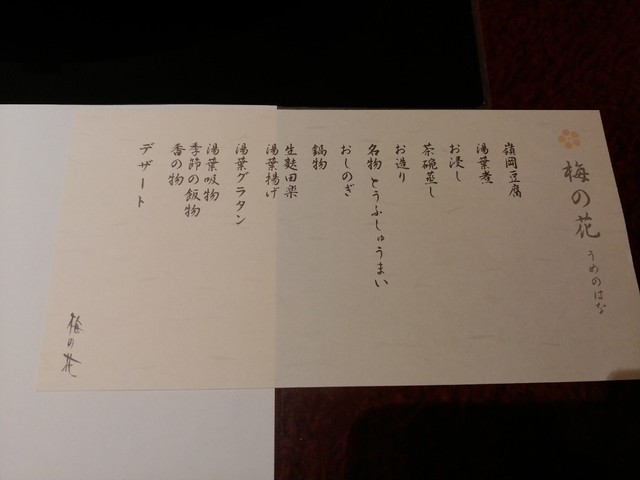 梅の花 うめのはな
嶺岡豆腐
湯葉煮
お浸し
茶碗蒸し
お造り
名物 とうふしゅうまい
おしのぎ
鍋物
生麩田楽
湯葉揚げ
湯葉グラタン
湯葉吸物
季節の飯物
香の物
デザート
梅の花